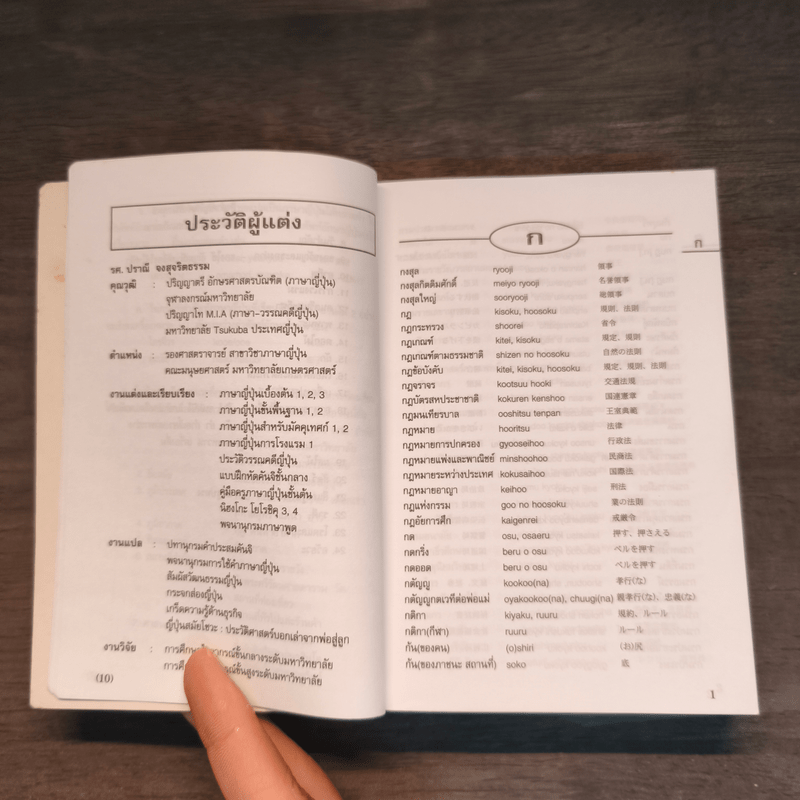 ประวัติผู้แต่ง
รศ. ปราณี จงสุจริตธรรม
คุณวุฒิ : ปริญญาตรี อักษรศาสตรบัณฑิต (ภาษาญี่ปุ่น)
จุฬาลงกรณ์มหาวิทยาลัย
ปริญญาโท M.I.A (ภาษา-วรรณคดีญี่ปุ่น)
มหาวิทยาลัย Tsukuba ประเทศญี่ปุ่น
ตำแหน่ง : รองศาสตราจารย์ สาขาวิชาภาษาญี่ปุ่น
คณะมนุษยศาสตร์ มหาวิทยาลัยเกษตรศาสตร์
งานแต่งและเรียบเรียง : ภาษาญี่ปุ่นเบื้องต้น 1, 2, 3
ภาษาญี่ปุ่นชั้นพื้นฐาน 1, 2
ภาษาญี่ปุ่นสำหรับมัคคุเทศก์ 1, 2
ภาษาญี่ปุ่นการโรงแรม 1
ประวัติวรรณคดีญี่ปุ่น
แบบฝึกหัดคันจิชั้นกลาง
คู่มือครูภาษาญี่ปุ่นชั้นต้น
นิฮงโกะ โยโรชิคุ 3, 4
พจนานุกรมภาษาพูด
งานแปล : ปทานุกรมคำประสมคันจิ
พจนานุกรมการใช้คำภาษาญี่ปุ่น
สัมผัสวัฒนธรรมญี่ปุ่น
กระจกส่องญี่ปุ่น
เกร็ดความรู้ด้านธุรกิจ
ญี่ปุ่นสมัยโชวะ : ประวัติศาสตร์บอกเล่าจากพ่อสู่ลูก
งานวิจัย : การศึกษา กรณ์ชั้นกลางระดับมหาวิทยาลัย
การศึ กรณ์ชั้นสูงระดับมหาวิทยาลัย
(10)
ก
ก
กงสุล ryooji 領事
กงสุลกิตติมศักดิ์ meiyo ryooji 名誉領事
กงสุลใหญ่ sooryooji 総領事
กฎ kisoku, hoosoku 規則、法則
กฎกระทรวง shoorei 省令
กฎเกณฑ์ kitei, kisoku 規定、規則
กฎเกณฑ์ตามธรรมชาติ shizen no hoosoku 自然の法則
กฎข้อบังคับ kitei, kisoku, hoosoku 規定、規則、法則
กฎจราจร kootsuu hooki 交通法規
กฎบัตรสหประชาชาติ kokuren kenshoo 国連憲章
กฎมนเทียรบาล ooshitsu tenpan 王室典範
กฎหมาย hooritsu 法律
กฎหมายการปกครอง gyooseihoo 行政法
กฎหมายแพ่งและพาณิชย์ minshoohoo 民商法
กฎหมายระหว่างประเทศ kokusaihoo 国際法
กฎหมายอาญา keihoo 刑法
กฎแห่งกรรม goo no hoosoku 業の法則
กฎอัยการศึก kaigenrei 戒厳令
กด osu, osaeru 押す、押さえる
กดกริ่ง beru o osu ベルを押す
กดออด beru o osu ベルを押す
กตัญญู kookoo(na) 孝行(な)
กตัญญูกตเวทีต่อพ่อแม่ oyakookoo(na), chuugi(na) 親孝行(な)、忠義(な)
กติกา kiyaku, ruuru 規約、ルール
กติกา(กีฬา) ruuru ルール
ก้น(ของคน) (o)shiri (お)尻
ก้น(ของภาชนะ สถานที่) soko 底
1